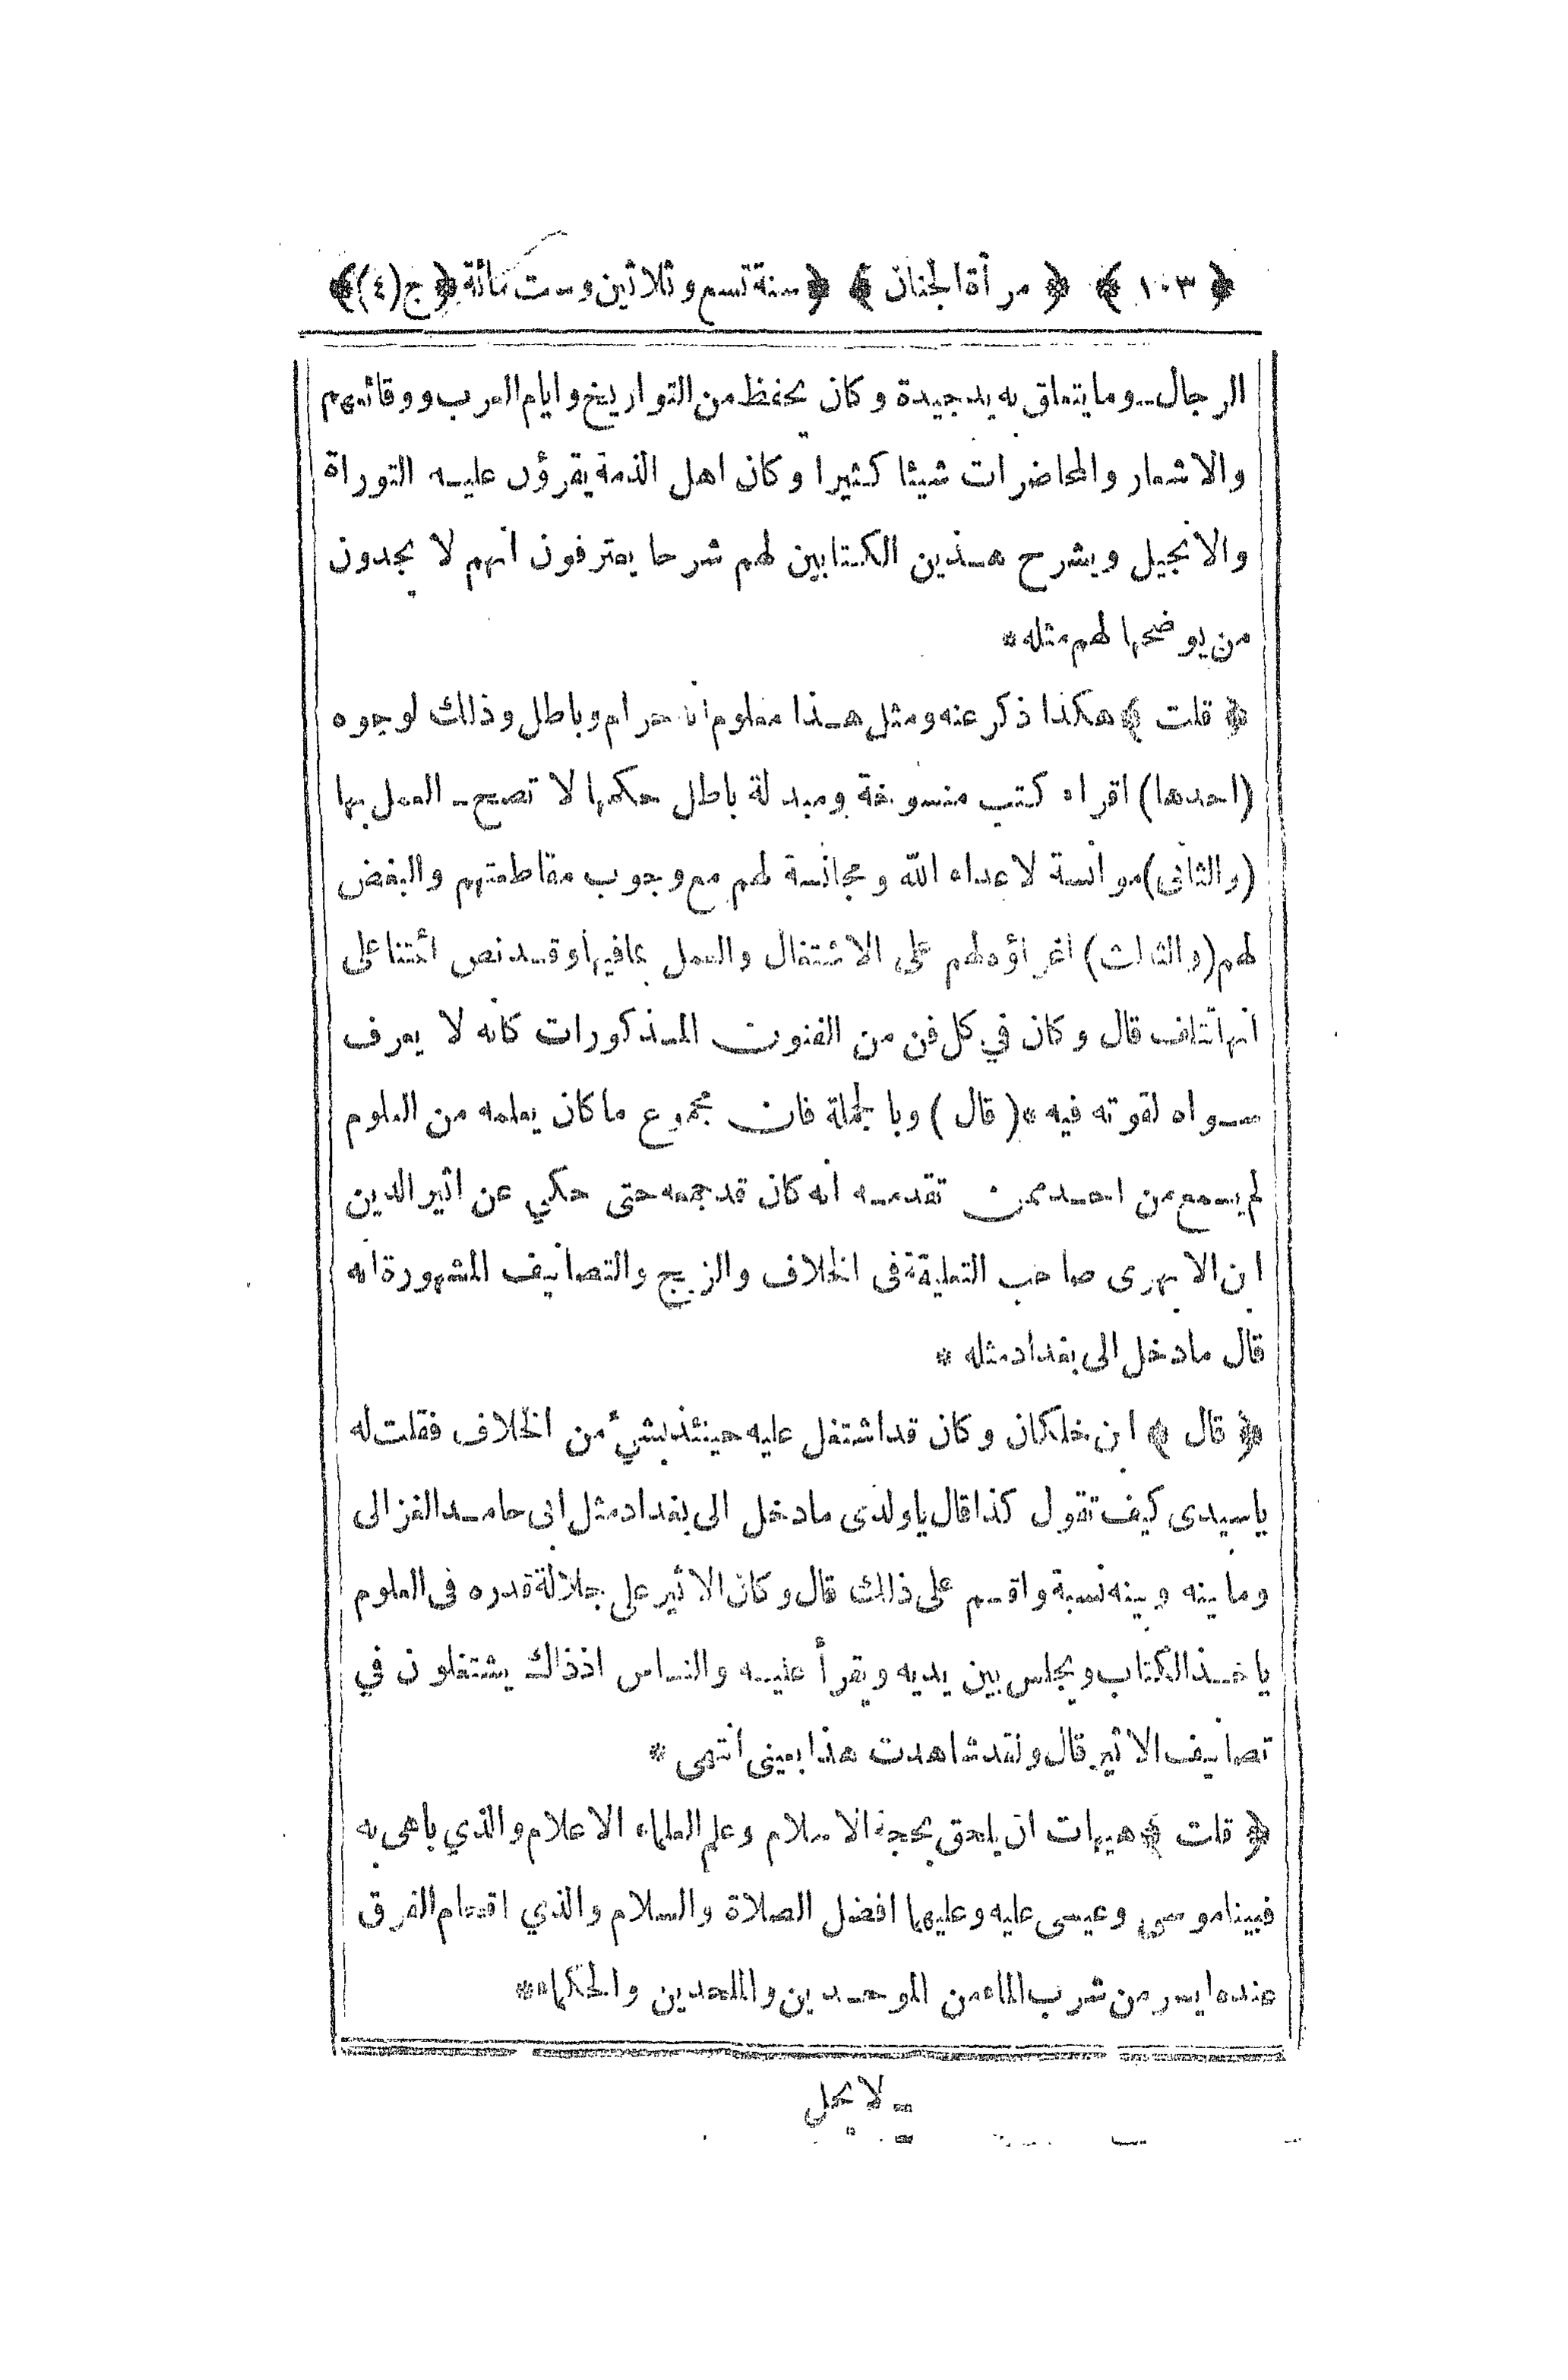 ﴿ ١٠٣ ﴾ ﴿ مرأة الجنان ﴾ ﴿ سنة تسع وثلاثين وست مائة ﴾ ﴿ ج (٤) ﴾
الرجال وما يتعلق به يد جيدة وكان يحفظ من التواريخ وايام العرب ووقائعهم
والاشعار والمحاضرات شيئا كثيرا وكان اهل الذمة يقرؤن عليه التوراة
والانجيل ويشرح هذين الكتابين لهم شرحا يعترفون انهم لا يجدون
من يوضحها لهم مثله *
﴿ قلت ﴾ هكذا ذكر عنه ومثل هذا معلوم انه حرام وباطل وذلك لوجوه
(احدها) اقراء كتب منسوخة ومبدلة باطل حكمها لا تصح العمل بها
(والثاني) موانسة لاعداء الله ومجانسة لهم مع وجوب مقاطعتهم والبغض
لهم (والثالث) اغراؤه لهم على الاشتغال والعمل بما فيها وقد نص ائمتنا على
انها تتلف قال وكان في كل فن من الفنون المذكورات كانه لا يعرف
سواه لقوته فيه * (قال) وبالجملة فان مجموع ما كان يعلمه من العلوم
لم يسمع من احد ممن تقدمه انه كان قد جمعه حتى حكي عن اثير الدين
ابن الابهرى صاحب التعليقة فى الخلاف والزيج والتصانيف المشهورة انه
قال ما دخل الى بغداد مثله *
﴿ قال ﴾ ابن خلكان وكان قد اشتغل عليه حينئذ بشئ من الخلاف فقلت له
يا سيدى كيف تقول كذا قال يا ولدى ما دخل الى بغداد مثل ابى حامد الغزالى
وما بينه وبينه نسبة واقسم على ذلك قال وكان الاثير على جلالة قدره فى العلوم
ياخذ الكتاب ويجلس بين يديه ويقرأ عليه والناس اذ ذاك يشتغلون في
تصانيف الاثير قال ولقد شاهدت هذا بعينى انتهى *
﴿ قلت ﴾ هيهات ان يلحق بحجة الاسلام وعلم العلماء الاعلام والذي باهى به
نبينا موسى وعيسى عليه وعليهما افضل الصلاة والسلام والذي اقحام الفرق
عنده ايسر من شرب الماء من الموحدين والملحدين والحكماء *
لا يحل